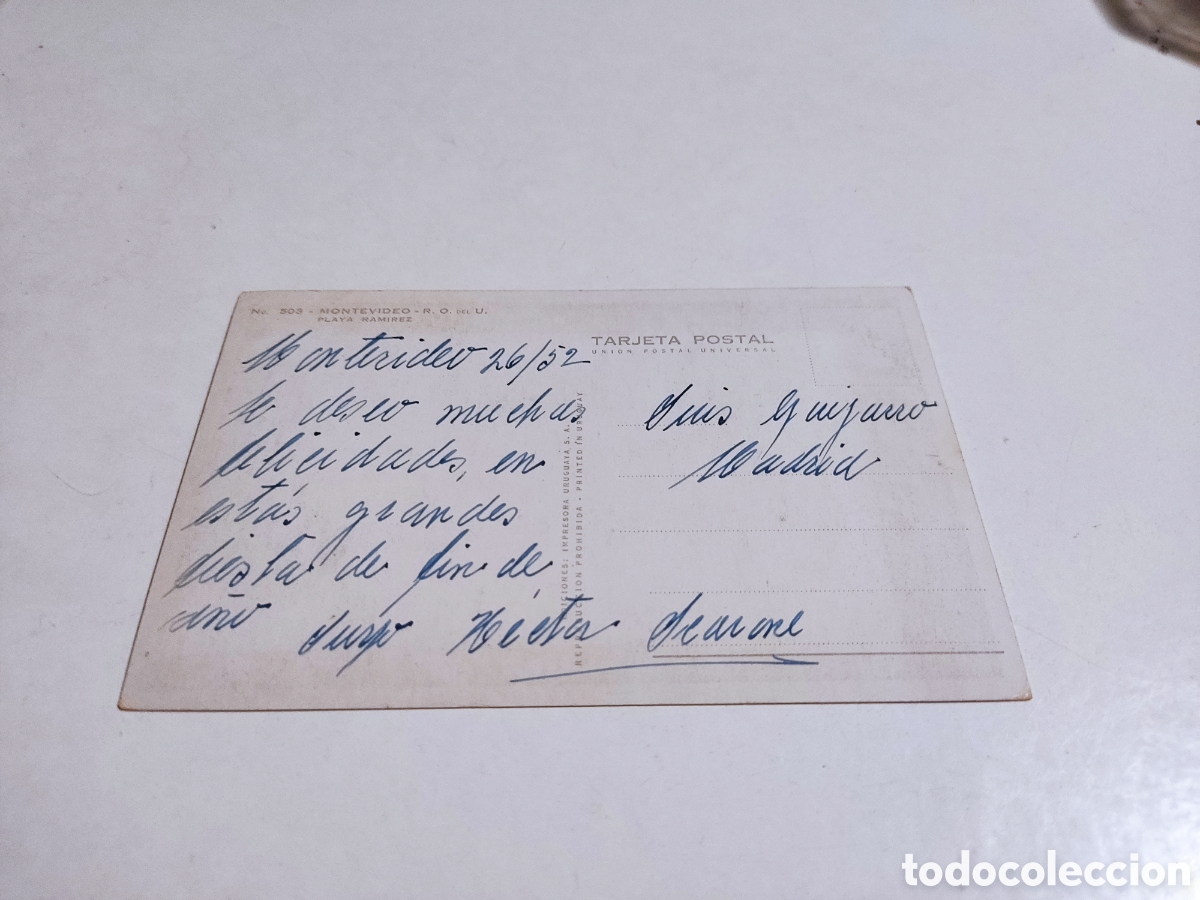 No. 503 - MONTEVIDEO - R. O. DEL U.
PLAYA RAMIREZ
TARJETA POSTAL
UNION POSTAL UNIVERSAL
Montevideo 26/52
te deseo muchas
felicidades, en
estás grandes
fiesta de fin de
año
Suyo Héctor Scarone
Luis Guijarro
Madrid
IMPRESORA URUGUAYA S. A.
REPRODUCCION PROHIBIDA - PRINTED IN URUGUAY
todocoleccion